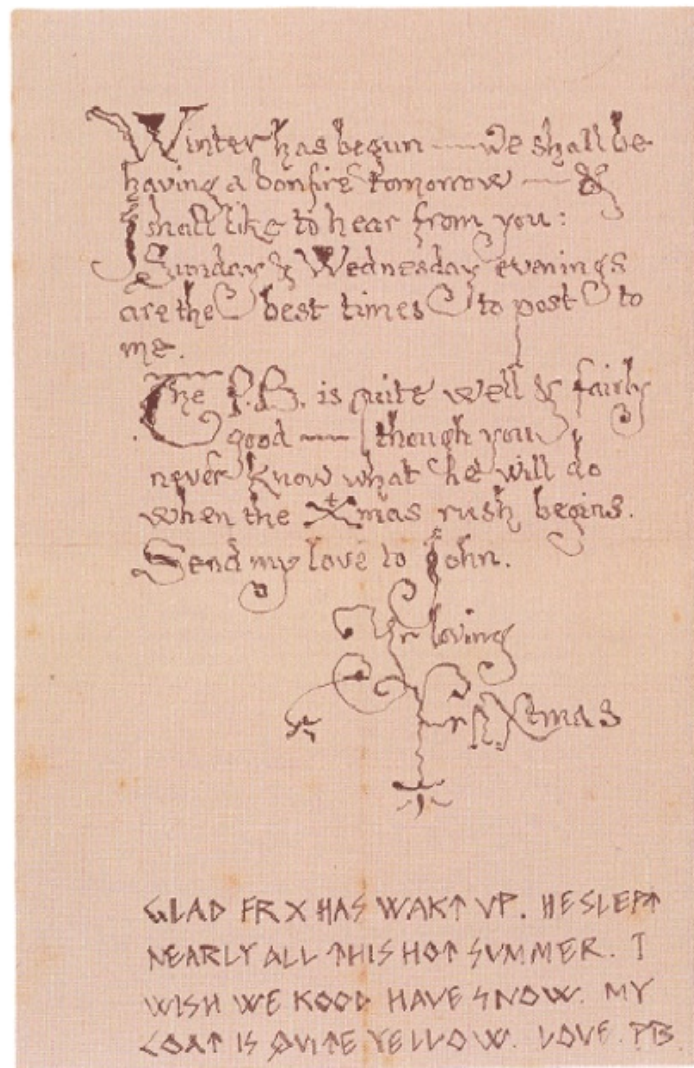 Winter has begun — We shall be
having a bonfire tomorrow — &
I shall like to hear from you:
Sunday & Wednesday evenings
are the best times to post to
me.
The P.B. is quite well & fairly
good — though you
never know what he will do
when the Xmas rush begins.
Send my love to John.
Yr loving
Fr. N. Xtmas
GLAD FR X HAS WAKT UP. HE SLEPT
NEARLY ALL THIS HOT SUMMER. I
WISH WE KOOD HAVE SNOW. MY
COAT IS QUITE YELLOW. LOVE. PB